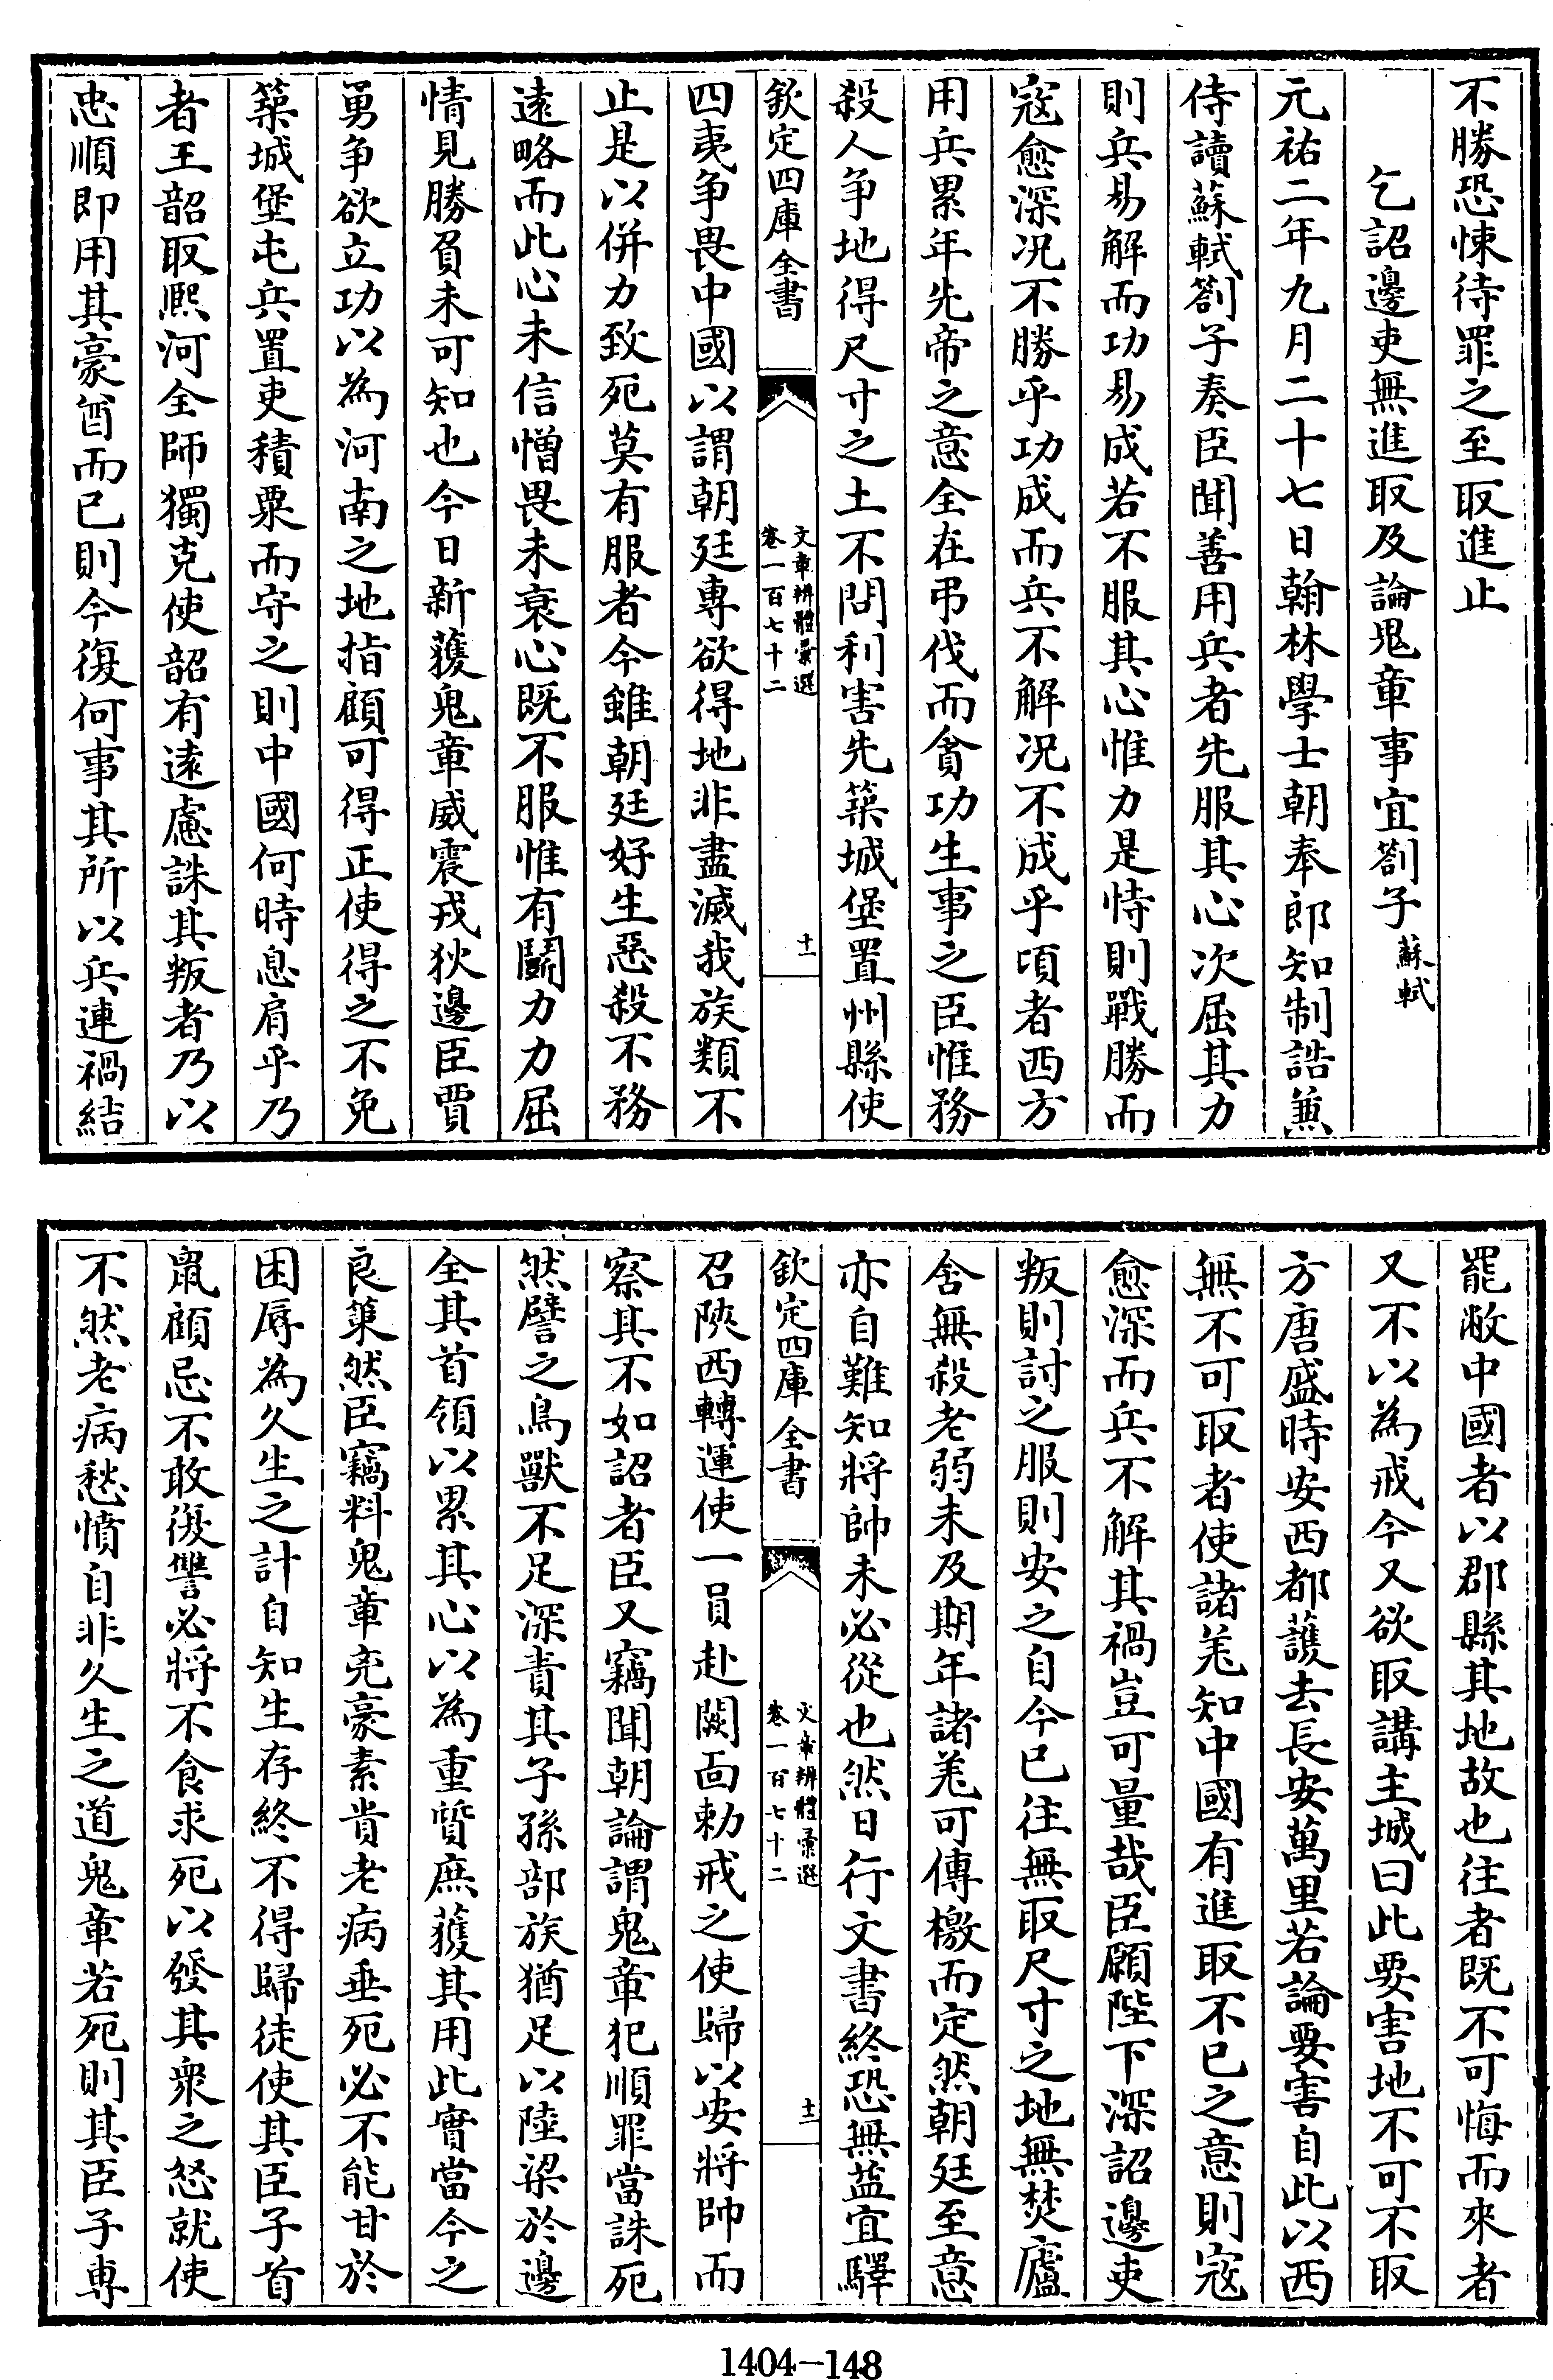 不勝恐悚待罪之至取進止
乞詔邊吏無進取及論鬼章事宜劄子蘇軾
元祐二年九月二十七日翰林學士朝奉郎知制誥兼
侍讀蘇軾劄子奏臣聞善用兵者先服其心次屈其力
則兵易解而功易成若不服其心惟力是恃則戰勝而
寇愈深况不勝乎功成而兵不解况不成乎頃者西方
用兵累年先帝之意全在弔伐而貪功生事之臣惟務
殺人争地得尺寸之土不問利害先築城堡置州縣使
欽定四庫全書
文章辨體彙選
卷一百七十二
十一
四夷争畏中國以謂朝廷專欲得地非盡滅我族類不
止是以併力致死莫有服者今雖朝廷好生惡殺不務
遠略而此心未信憎畏未衰心既不服惟有鬭力力屈
情見勝負未可知也今日新獲鬼章威震戎狄邊臣賈
勇争欲立功以為河南之地指顧可得正使得之不免
築城堡屯兵置吏積粟而守之則中國何時息肩乎乃
者王韶取熈河全師獨克使韶有遠慮誅其叛者乃以
忠順即用其豪酋而已則今復何事其所以兵連禍結
罷敝中國者以郡縣其地故也往者既不可悔而來者
又不以為戒今又欲取講主城曰此要害地不可不取
方唐盛時安西都護去長安萬里若論要害自此以西
無不可取者使諸羌知中國有進取不已之意則寇
愈深而兵不解其禍豈可量哉臣願陛下深詔邊吏
叛則討之服則安之自今已往無取尺寸之地無焚廬
舍無殺老弱未及期年諸羌可傳檄而定然朝廷至意
亦自難知將帥未必從也然日行文書終恐無益宜驛
欽定四庫全書
文章辨體彙選
卷一百七十二
十二
召陜西轉運使一員赴闕面勅戒之使歸以安將帥而
察其不如詔者臣又竊聞朝論謂鬼章犯順罪當誅死
然譬之鳥獸不足深責其子孫部族猶足以陸梁於邊
全其首領以累其心以為重質庶獲其用此實當今之
良策然臣竊料鬼章兇豪素貴老病垂死必不能甘於
困辱為久生之計自知生存終不得歸徒使其臣子首
鼠顧忌不敢復讐必將不食求死以發其衆之怒就使
不然老病愁憤自非久生之道鬼章若死則其臣子專
1404-148